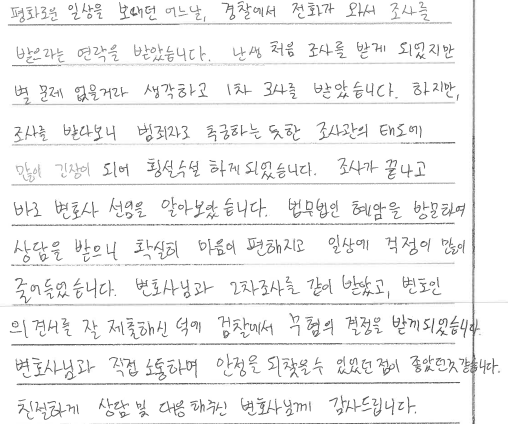 평화로운 일상을 보내던 어느날, 경찰에서 전화가 와서 조사를
받으라는 연락을 받았습니다. 난생 처음 조사를 받게 되었지만
별 문제 없을거라 생각하고 1차 조사를 받았습니다. 하지만,
조사를 받다보니 범죄자로 추궁하는 듯한 조사관의 태도에
많이 긴장이 되어 횡설수설 하게되었습니다. 조사가 끝나고
바로 변호사 선임을 알아보았습니다. 법무법인 혜암을 방문하여
상담을 받으니 확실히 마음이 편해지고 일상에 걱정이 많이
줄어들었습니다. 변호사님과 2차조사를 같이 받았고, 변호인
의견서를 잘 제출해주신 덕에 검찰에서 무혐의 결정을 받게되었습니다.
변호사님과 직접 소통하며 안정을 되찾을수 있었던 점이 좋았던것 같습니다.
친절하게 상담 및 대응해주신 변호사님께 감사드립니다.